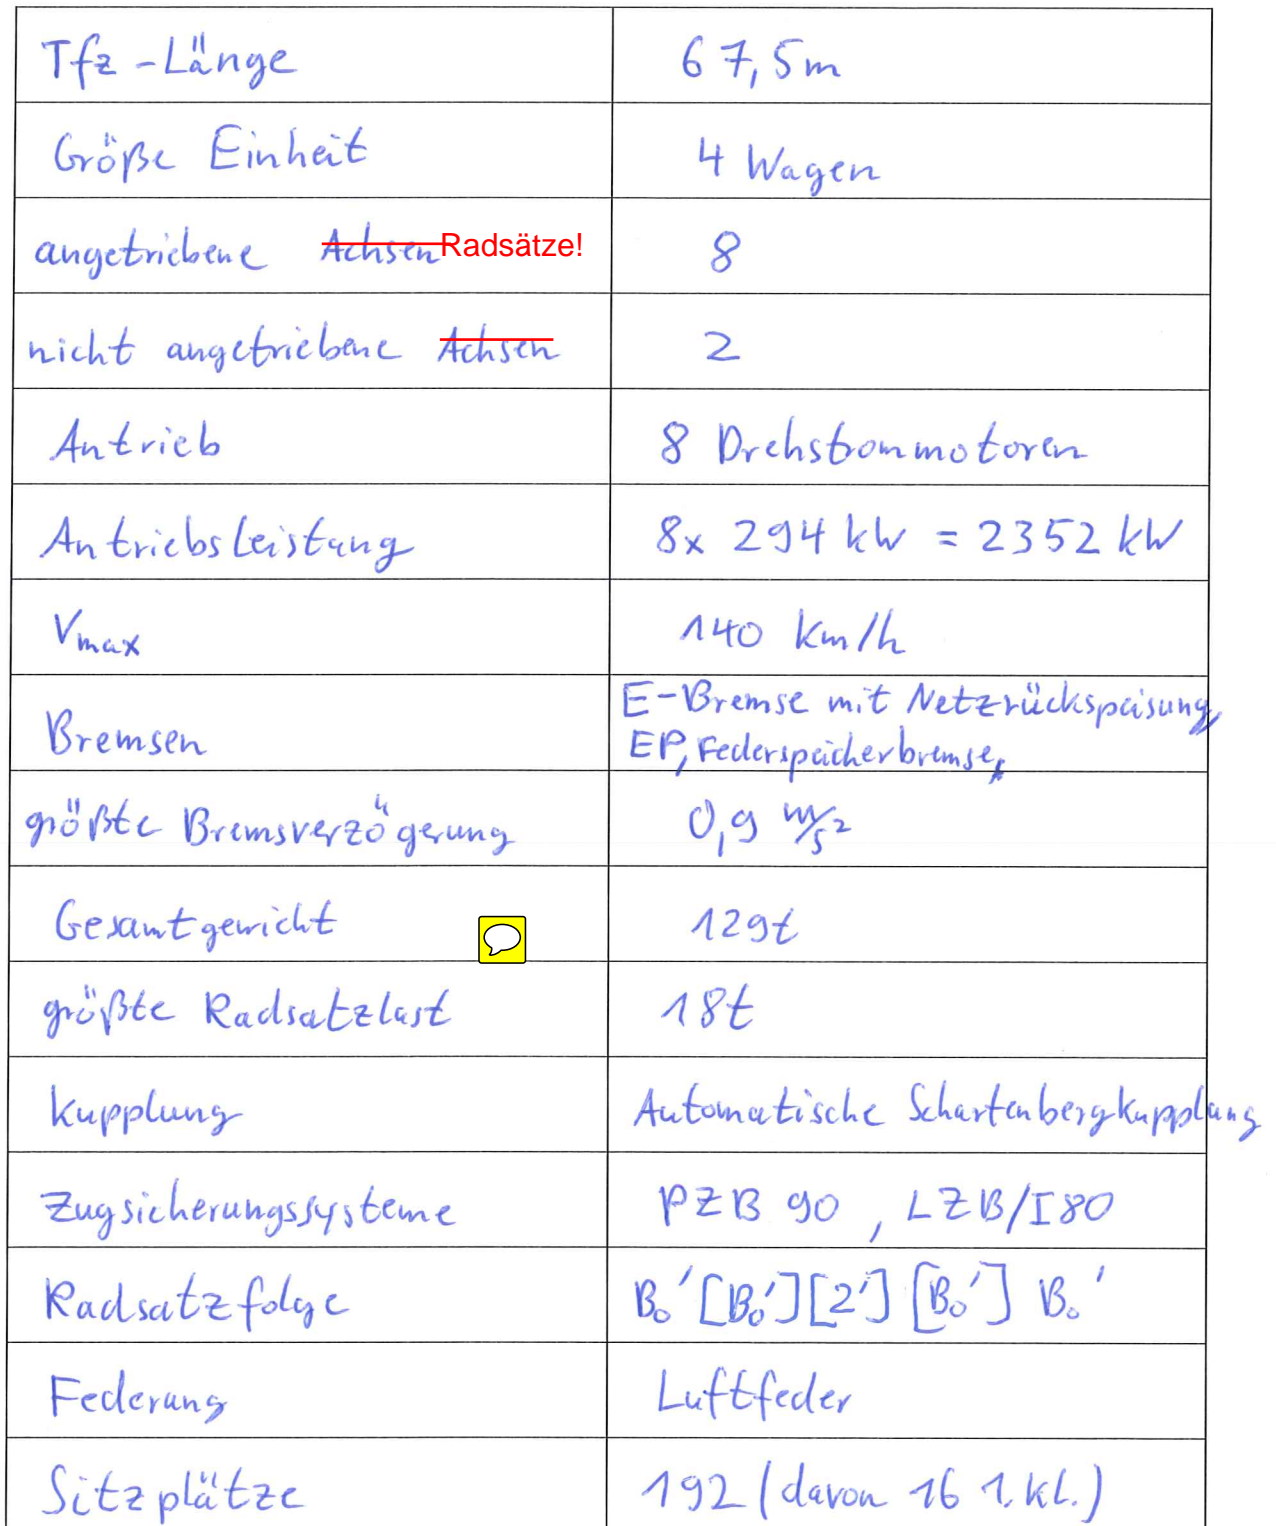 Tfz-Länge 67,5m
Größe Einheit 4 Wagen
angetriebene Achsen Radsätze! 8
nicht angetriebene Achsen 2
Antrieb 8 Drehstrommotoren
Antriebsleistung 8x 294 kW = 2352 kW
Vmax 140 km/h
Bremsen E-Bremse mit Netzrückspeisung,
EP, Federspeicherbremse,
größte Bremsverzögerung 0,9 m/s²
Gesamtgewicht 129t
größte Radsatzlast 18t
Kupplung Automatische Scharfenbergkupplung
Zugsicherungssysteme PZB 90, LZB/I80
Radsatzfolge B₀'[B₀'][2'][B₀']B₀'
Federung Luftfeder
Sitzplätze 192 (davon 16 1. Kl.)